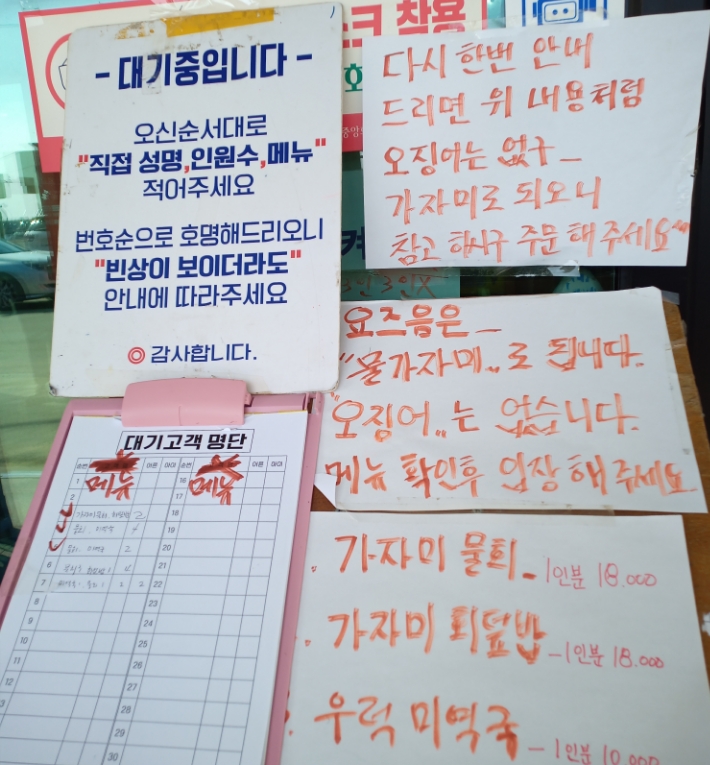 착용
- 대기중입니다 -
오신순서대로
"직접 성명,인원수,메뉴"
적어주세요
번호순으로 호명해드리오니
"빈상이 보이더라도"
안내에 따라주세요
◎ 감사합니다.
다시 한번 안내
드리면 위 내용처럼
오징어는 없구_
가자미로 되오니
참고 하시구 주문 해 주세요
요즈음은_
"물가자미"로 됩니다.
"오징어"는 없습니다.
메뉴 확인후 입장 해 주세요
대기고객 명단
순번 어른 아이 순번 어른 아이
1 메뉴 16 메뉴
2
18
19
20
21
6
7 22
8 23
9 24
10 25
11 26
12 27
28
29
30
. 가자미 물회_ 1인분 18.000
. 가자미 회덮밥 _1인분 18.000
우럭 미역국 _1인분 10.000